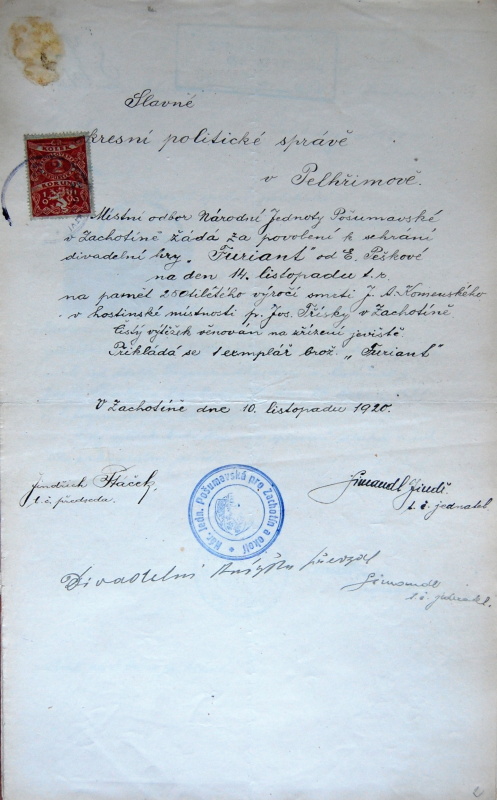 Slavné
kresní politické správě
v Pelhřimově.
KOLEK
2
KORUNY
Místní odbor Národní Jednoty Pošumavské
v Zachotíně žádá za povolení k sehrání
divadelní hry „Furiant" od E. Peškové
na den 14. listopadu t.r.
na pamět 250tiletého výročí smrti J. A. Komenského
v hostinské místnosti p. Jos. Třísky v Zachotíně
Čistý výtěžek věnován na zřízení jeviště.
Přikládá se 1 exmplář brož. „Furiant"
V Zachotíně dne 10. listopadu 1920.
Jindřich Ptáček
t. č. předseda.
Simandl
t. č. jednatel
Nár. Jedn. Pošumavská pro Zachotín a okolí
Divadelní knížku převzal
Simandl
t. č. jednatel.
2